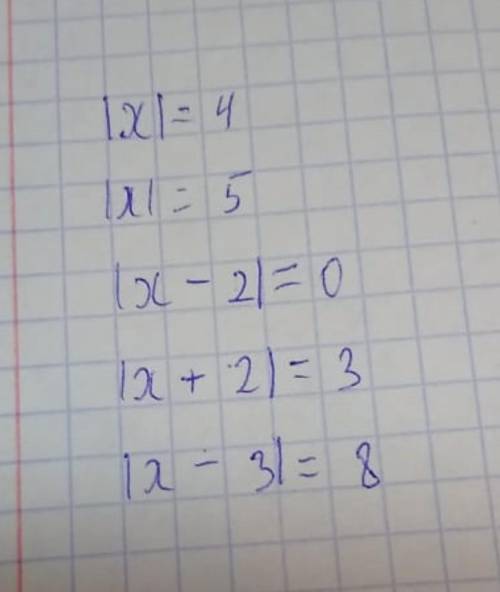 |x| = 4
|x| = 5
|x - 2| = 0
|x + 2| = 3
|x - 3| = 8